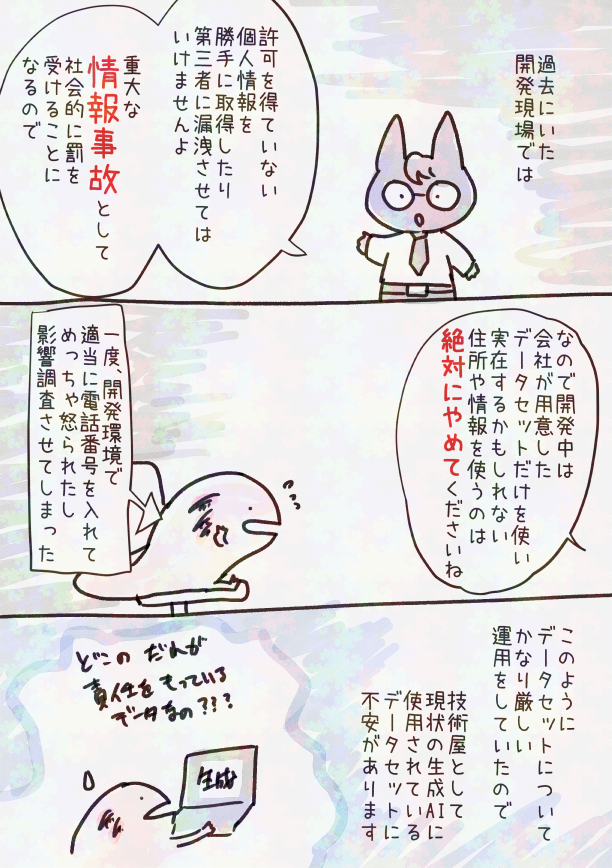 過去にいた
開発現場では
許可を得ていない
個人情報を
勝手に取得したり
第三者に漏洩させては
いけませんよ
重大な
情報事故として
社会的に罰を
受けることに
なるので
なので開発中は
会社が用意した
データセットだけを使い
実在するかもしれない
住所や情報を使うのは
絶対にやめてくださいね
一度、開発環境で
適当に電話番号を入れて
めっちゃ怒られたし
影響調査させてしまった
このように
データセットについて
かなり厳しい
運用をしていたので
技術屋として
現状の生成AIに
使用されている
データセットに
不安があります
どこの だれが
責任をもっている
データなの???
生成